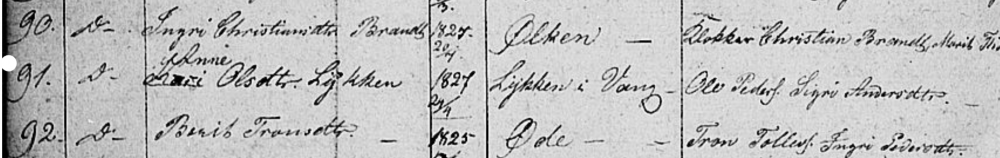 90. D- Ingri Christiansdtr Brandt 1827. Ølken — Klokker Christian Brandt, Marit
20/4
Anne
91. D- Mari Olsdtr. Lykken 1827 Lykken i Vang - Ole Peders. Sigri Andersdtr. -
24/4
92. D- Berit Tronsdtr. - 1825 Øde - - Tron Tollefs. Ingri Pedersdtr.